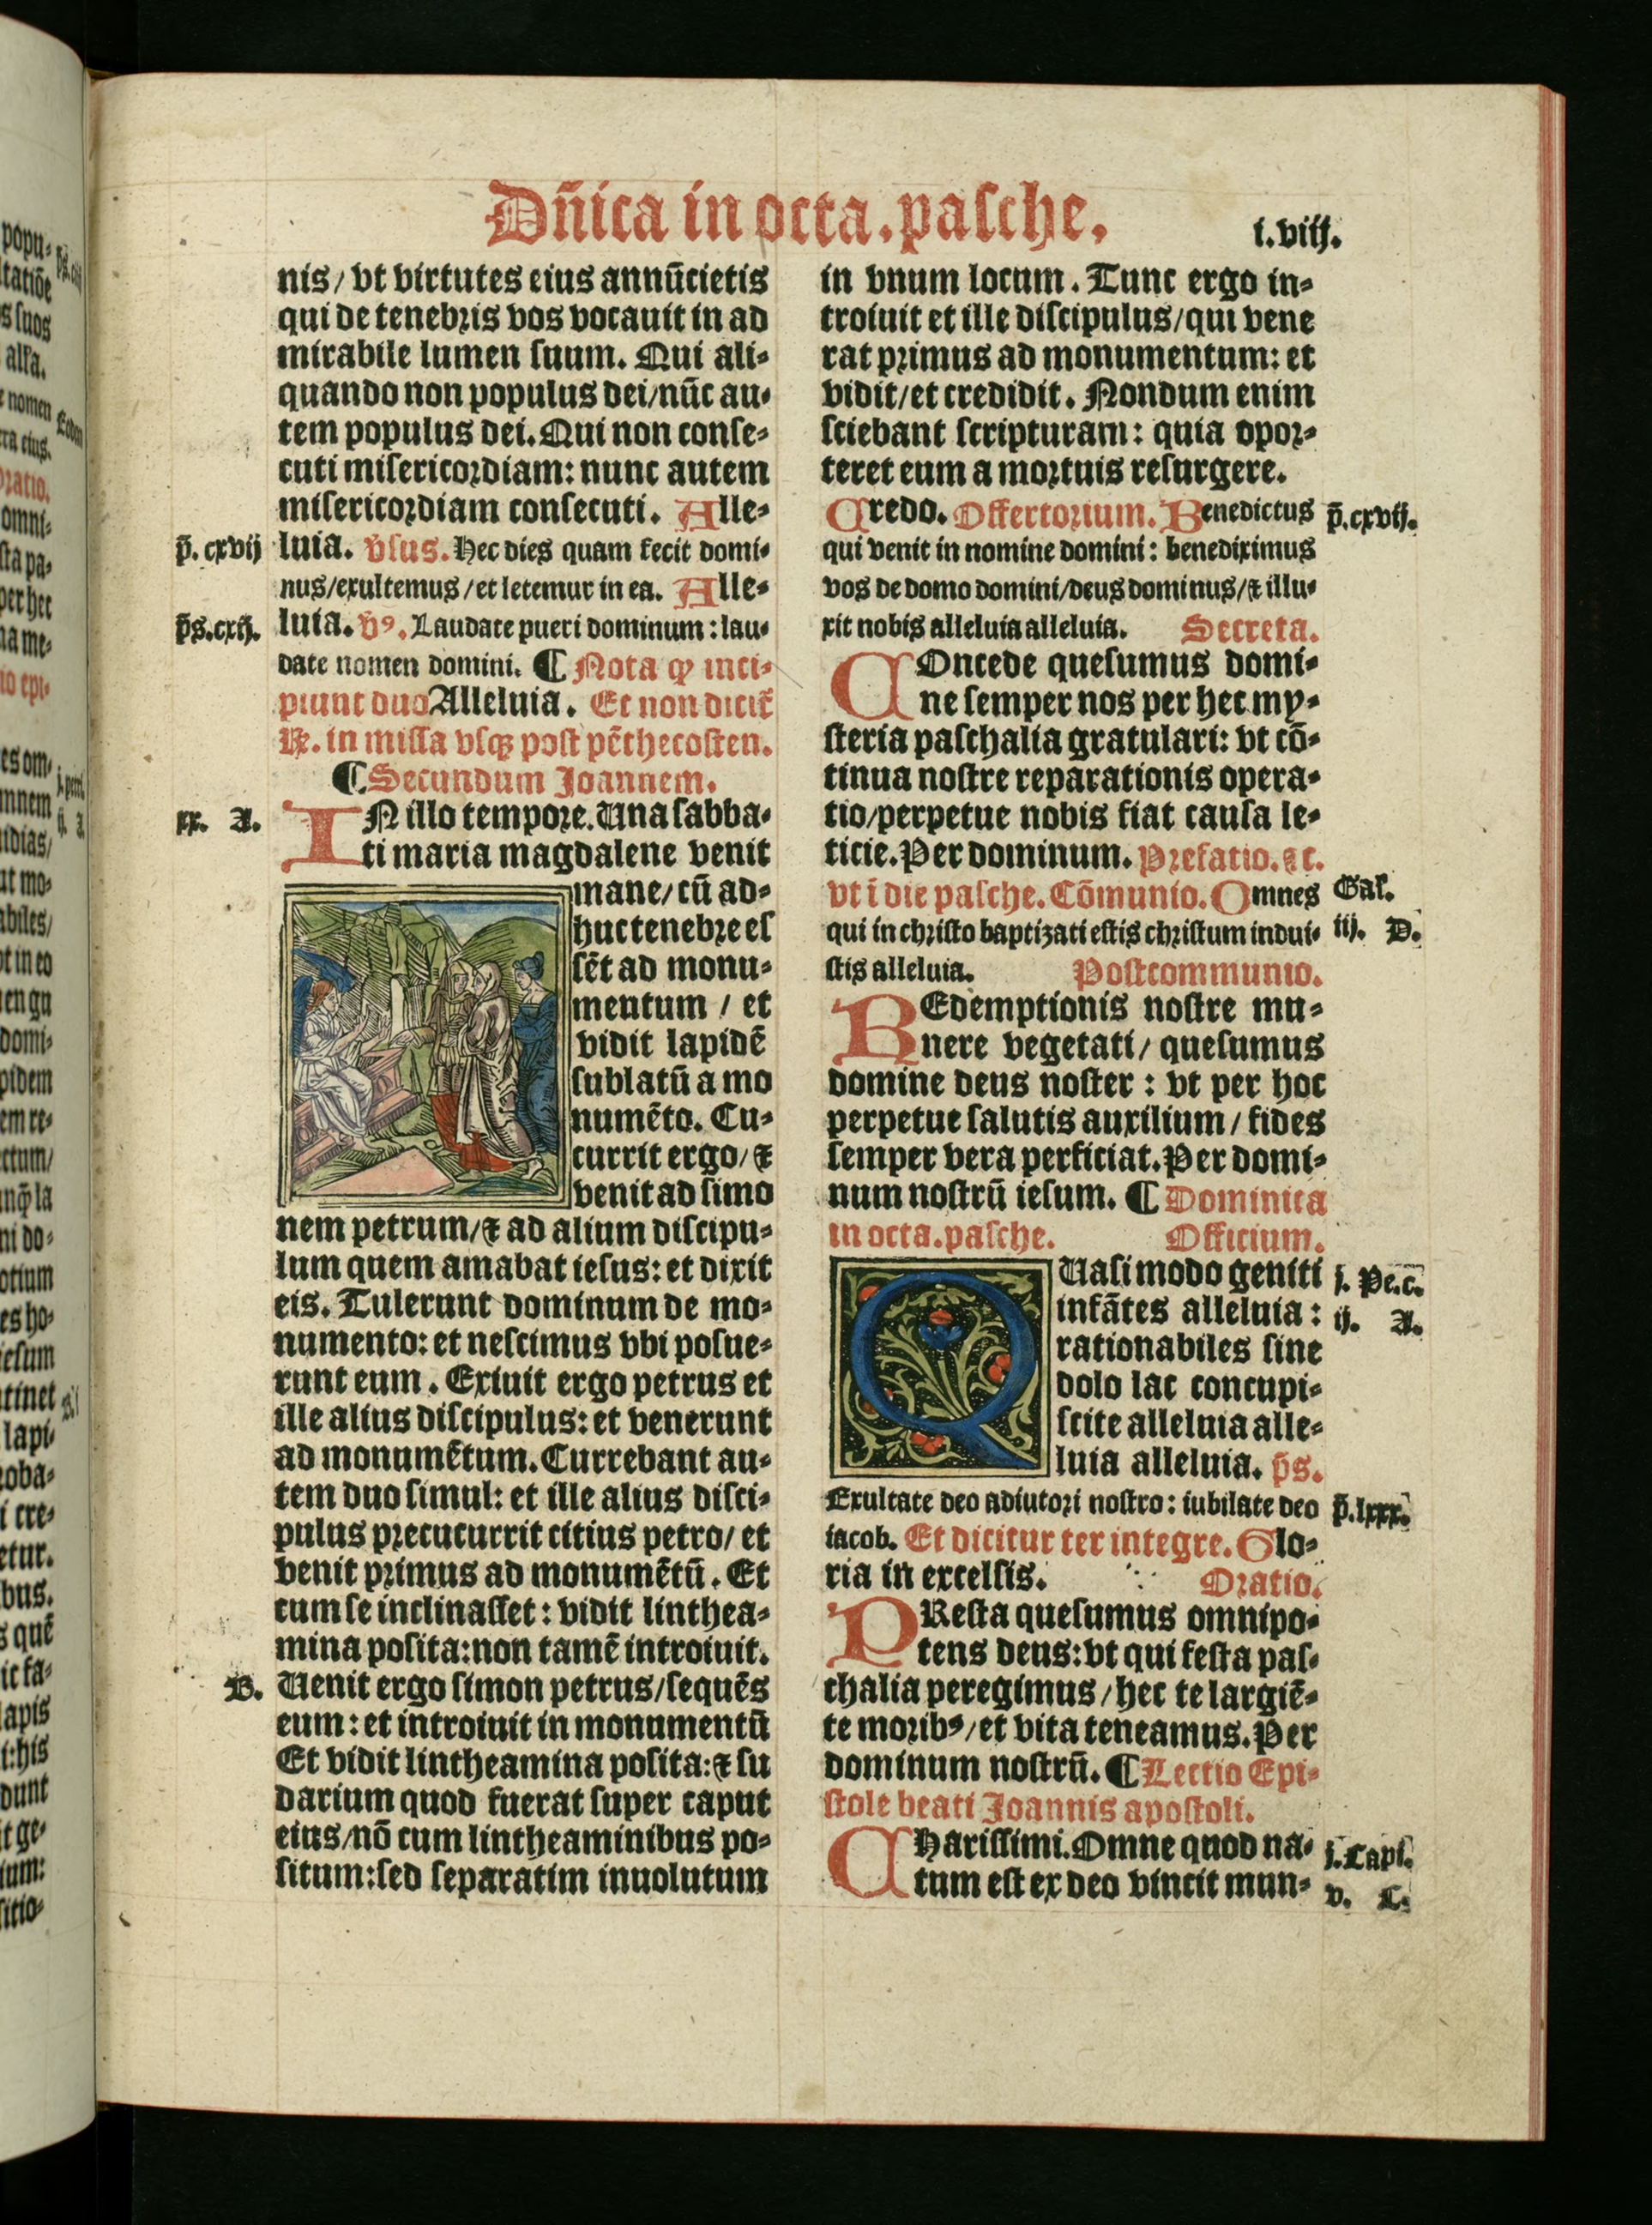 Dn̄ica in octa. pasche.
i.viij.
nis/ vt virtutes eius annūcietis
qui de tenebris vos vocauit in ad
mirabile lumen suum. Qui ali-
quando non populus dei/nūc au-
tem populus dei. Qui non conse-
cuti misericordiam: nunc autem
misericordiam consecuti. Alle-
p̄. cxvij
luia. v̄sus. Hec dies quam fecit domi-
nus/exultemus/et letemur in ea. Alle-
p̄s.cxij.
luia. v̄ꝯ. Laudate pueri dominum: lau-
date nomen domini. ¶ Nota ꝙ inci-
piunt duo Alleluia. Et non dicit̄
℞. in missa vsqꝫ post pēthecosten.
¶ Secundum Joannem.
xx. A.
IN illo tempore. Una sabba-
ti maria magdalene venit
mane/ cū ad-
huc tenebre es
sēt ad monu-
mentum / et
vidit lapidē
sublatū a mo
numēto. Cu-
currit ergo/⁊
venit ad simo
nem petrum/⁊ ad alium discipu-
lum quem amabat iesus: et dixit
eis. Tulerunt dominum de mo-
numento: et nescimus vbi posue-
runt eum. Exiuit ergo petrus et
ille alius discipulus: et venerunt
ad monumētum. Currebant au-
tem duo simul: et ille alius disci-
pulus precucurrit citius petro/ et
venit primus ad monumētū. Et
cum se inclinasset: vidit linthea-
mina posita: non tamē introiuit.
B.
Uenit ergo simon petrus/sequēs
eum: et introiuit in monumentū
Et vidit lintheamina posita: ⁊ su
darium quod fuerat super caput
eius/nō cum lintheaminibus po-
situm: sed separatim inuolutum
in vnum locum. Tunc ergo in-
troiuit et ille discipulus/qui vene
rat primus ad monumentum: et
vidit/et credidit. Nondum enim
sciebant scripturam: quia opor-
teret eum a mortuis resurgere.
Credo. Offertorium. Benedictus
p̄.cxvij.
qui venit in nomine domini: benediximus
vos de domo domini/deus dominus/⁊ illu-
xit nobis alleluia alleluia. Secreta.
COncede quesumus domi-
ne semper nos per hec my-
steria paschalia gratulari: vt cō-
tinua nostre reparationis opera-
tio/perpetue nobis fiat causa le-
ticie. Per dominum. Prefatio. ⁊c.
vt ī die pasche. Cōmunio. Omnes
Gal.
qui in christo baptizati estis christum indui-
iij. D.
stis alleluia. Postcommunio.
REdemptionis nostre mu-
nere vegetati/ quesumus
domine deus noster: vt per hoc
perpetue salutis auxilium/ fides
semper vera perficiat. Per domi-
num nostrū iesum. ¶ Dominica
in octa. pasche. Officium.
QUasi modo geniti
j. Pe.c.
infātes alleluia:
ij. A.
rationabiles sine
dolo lac concupi-
scite alleluia alle-
luia alleluia. p̄s.
Exultate deo adiutori nostro: iubilate deo
p̄.lxxx.
iacob. Et dicitur ter integre. Glo-
ria in excelsis. Oratio.
PResta quesumus omnipo-
tens deus: vt qui festa pas-
chalia peregimus/hec te largiē-
te moribꝰ/et vita teneamus. Per
dominum nostrū. ¶ Lectio Epi-
stole beati Joannis apostoli.
CHarissimi. Omne quod na-
j.Capi.
tum est ex deo vincit mun-
v. C.